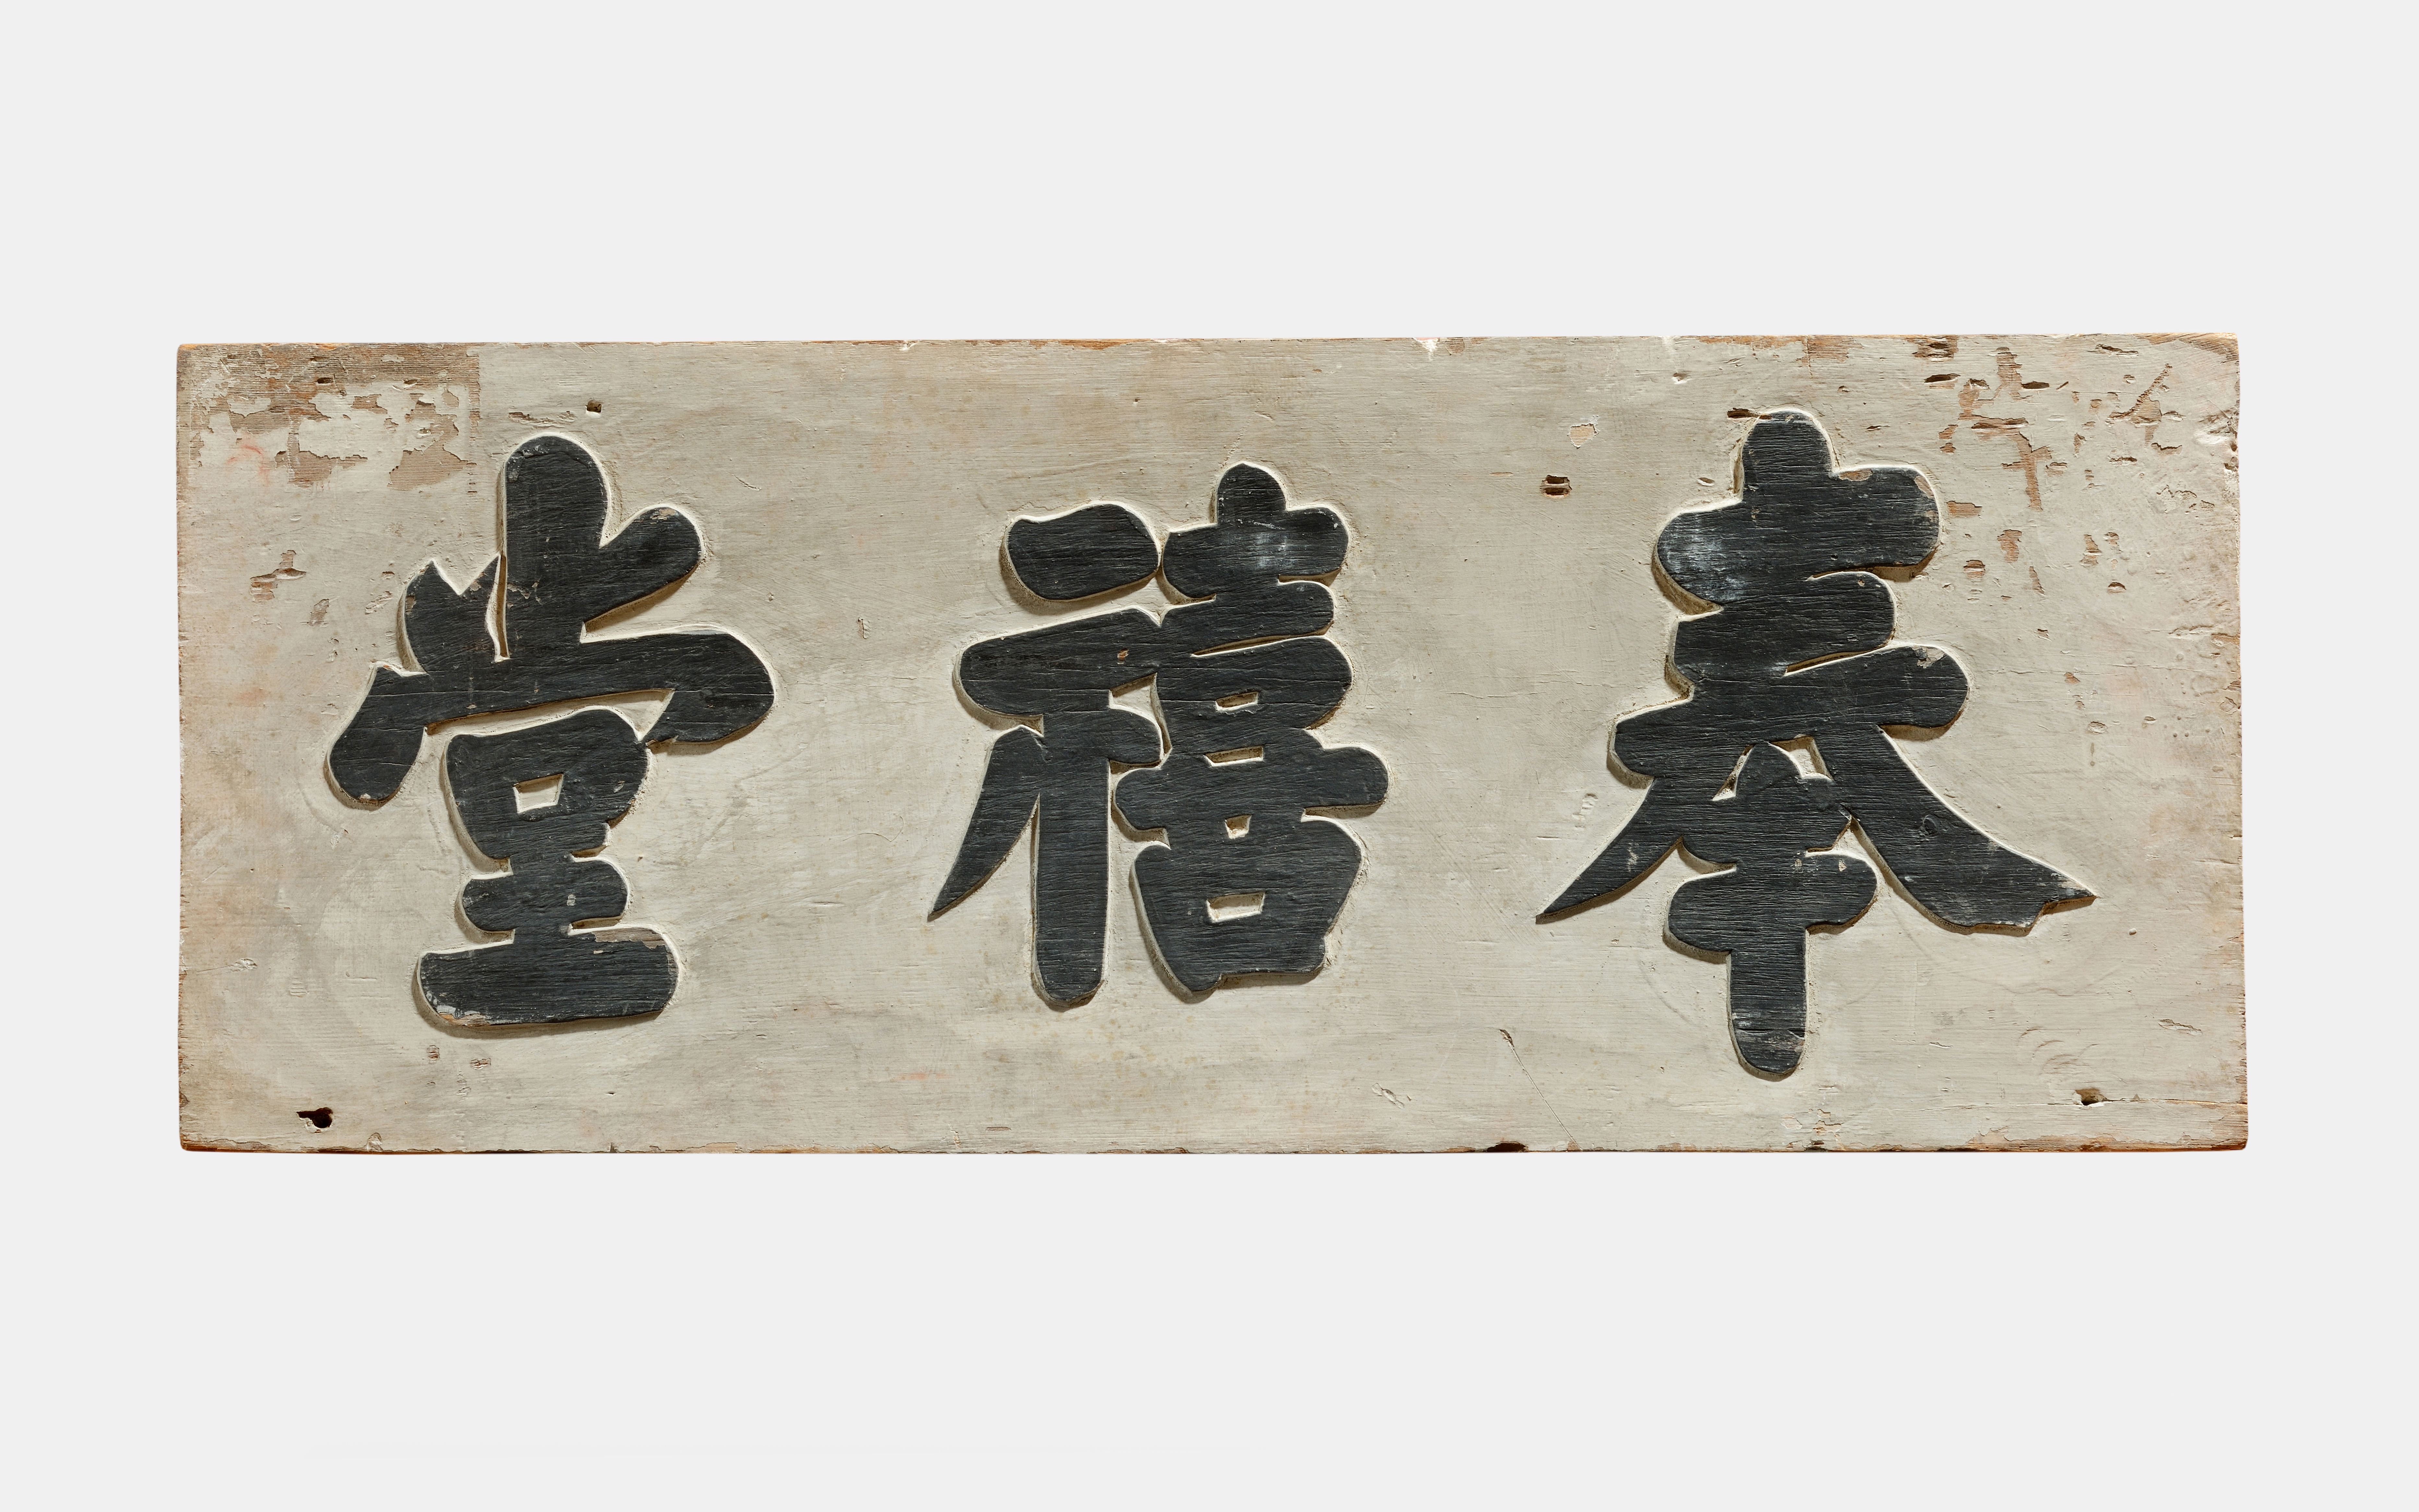 奉禧堂